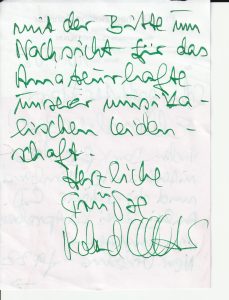 mit der Bitte um
Nachsicht für das
Amateurhafte
unserer musika-
lischen Leiden-
schaft.
Herzliche
Grüße
Roland